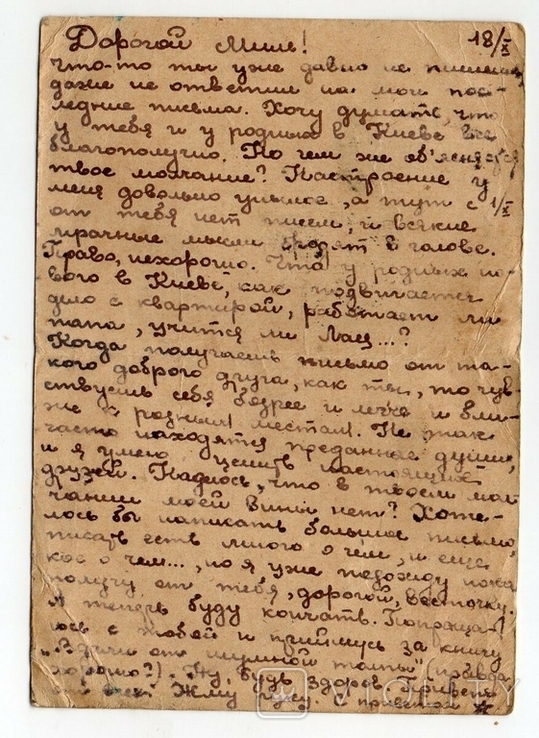 18/X
Дорогой Миша!
Что-то ты уже давно не пишешь,
даже не ответил на мои пос-
ледние письма. Хочу думать, что
у тебя и у родных в Киеве все
благополучно. Но чем же об'ясняется
твое молчание? Настроение у
меня довольно унылое, а тут с 1/X
от тебя нет писем, и всякие
мрачные мысли бродят в голове.
Право, нехорошо. Что у родных но-
вого в Киеве, как подвигается
дело с квартирой, работает ли
папа, учится ли ...?
Когда получаешь письмо от та-
кого доброго друга, как ты, то чув-
ствуешь себя бодрее и легче и бли-
же к родным местам. Не так
часто находятся преданные души,
и я умею ценить настоящих
друзей. Надеюсь, что в твоем мол-
чании моей вины нет? Хоте-
лось бы написать большое письмо,
писать есть много о чем, и еще
кое о чем..., но я уже подожду пока
получу от тебя, дорогой, весточку.
А теперь буду кончать. Попрощаю
юсь с тобой и примусь за книгу
"Вдали от шумной толпы" (правда
хорошо?). Ну, будь здоров. Привет
Жму руку. С приветом
VIOLITY